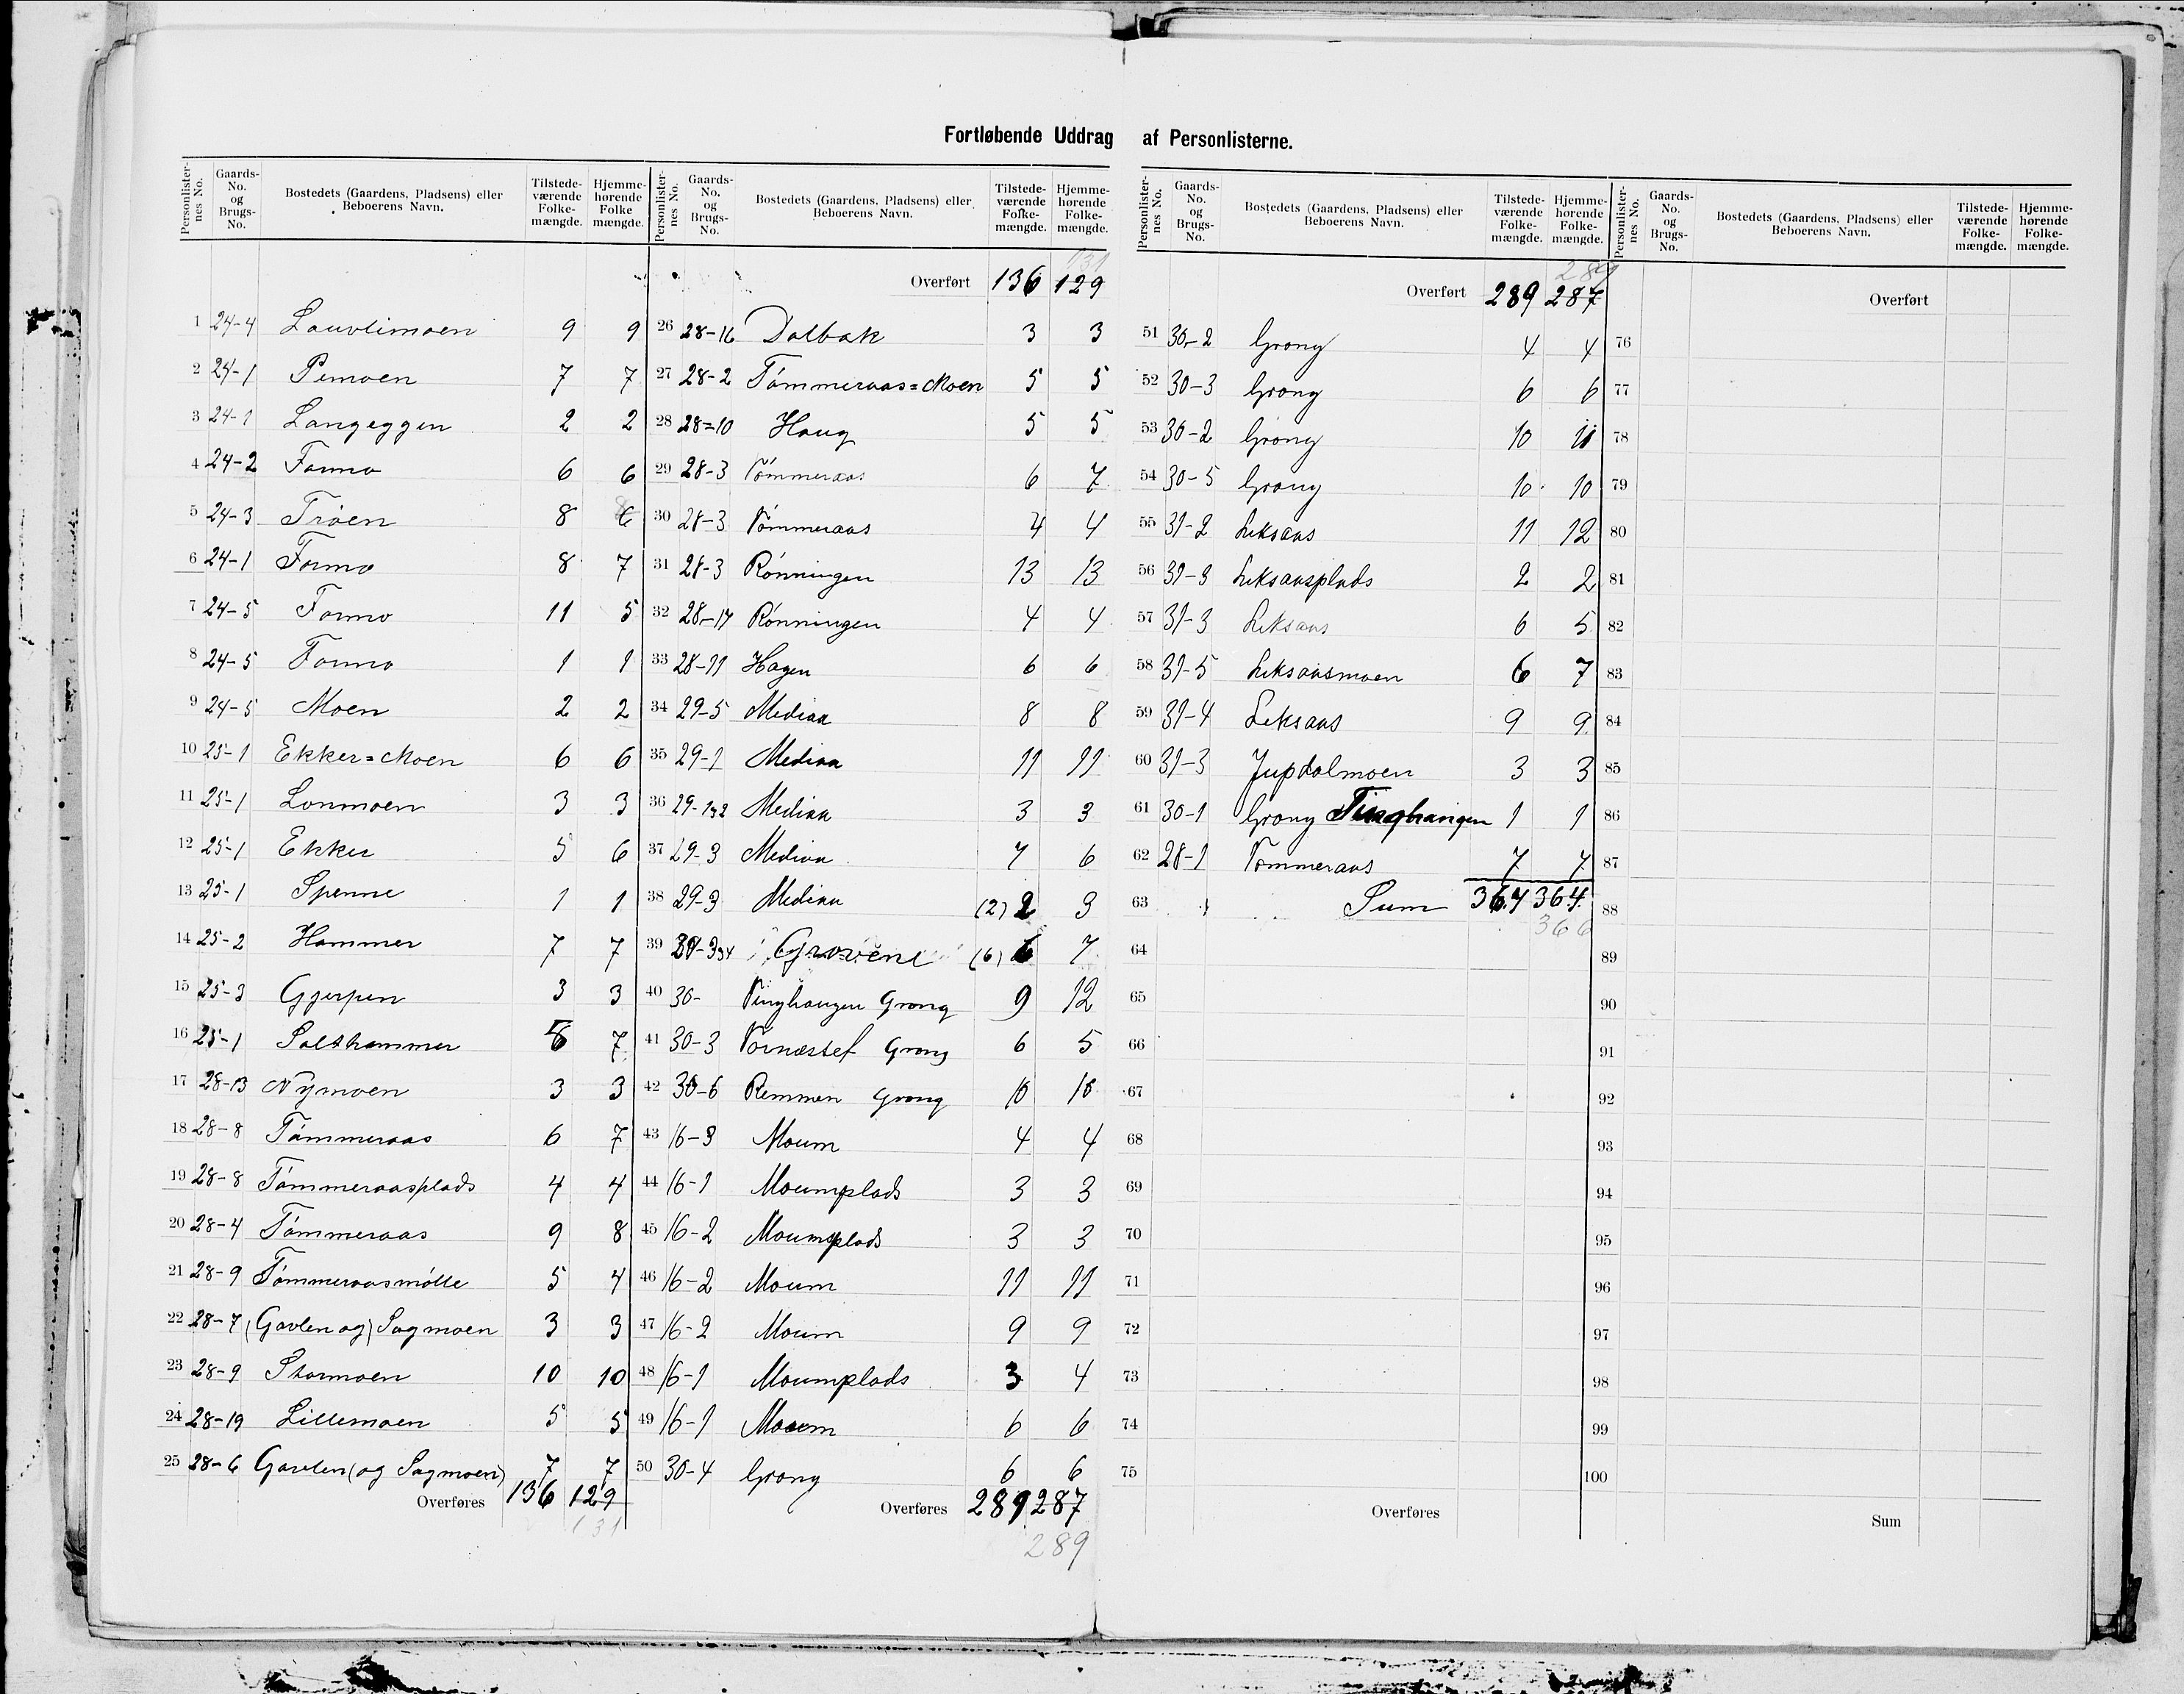 Fortløbende Uddrag af Personlisterne.
Personlisternes No. Gaards-No. og Brugs-No. Bostedets (Gaardens, Pladsens) eller Beboerens Navn. Tilstedeværende Folkemængde. Hjemmehørende Folkemængde.
1 24-4 Lauvlimoen 9 9
2 24-1 Pemoen 7 7
3 24-1 Langeggen 2 2
4 24-2 Formo 6 6
5 24-3 Trøen 8 6
6 24-1 Formo 8 7
7 24-5 Formo 11 5
8 24-5 Formo 1 1
9 24-5 Moen 2 2
10 25-1 Ekker=Moen 6 6
11 25-1 Lonmoen 3 3
12 25-1 Ekker 5 6
13 25-1 Spenne 1 1
14 25-2 Hammer 7 7
15 25-3 Gjerpen 3 3
16 25-1 Salthammer 5 7
17 28-13 Nymoen 3 3
18 28-8 Tømmeraas 6 7
19 28-8 Tømmeraasplads 4 4
20 28-4 Tømmeraas 9 8
21 28-9 Tømmeraasmølle 5 4
22 28-7 (Gavlen og) Sagmoen 3 3
23 28-9 Stormoen 10 10
24 28-19 Lillemoen 5 5
25 28-6 Gavlen (og Sagmoen) 7 7
Overføres 136 129
131
Personlisternes No. Gaards-No. og Brugs-No. Bostedets (Gaardens, Pladsens) eller Beboerens Navn. Tilstedeværende Folkemængde. Hjemmehørende Folkemængde.
131
Overført 136 129
26 28-16 Dalbak 3 3
27 28-2 Tømmeraas=Moen 5 5
28 28=10 Haug 5 5
29 28-3 Tømmeraas 6 7
30 28-3 Tømmeraas 4 4
31 28-3 Rønningen 13 13
32 28-17 Rønningen 4 4
33 28-11 Hagen 6 6
34 29-5 Mediaa 8 8
35 29-1 Mediaa 11 11
36 29-1&2 Mediaa 3 3
37 29-3 Mediaa 7 6
38 29-3 Mediaa (2) 2 3
39 Grovene (6) 6 7
40 30- Tinghaugen Grong 9 12
41 30-3 Grong 6 5
42 30-6 Remmen Grong 10 10
43 16-3 Moum 4 4
44 16-1 Moumplads 3 3
45 16-2 Moumsplads 3 3
46 16-2 Moum 11 11
47 16-2 Moum 9 9
48 16-1 Moumplads 3 4
49 16-1 Moum 6 6
50 30-4 Grong 6 6
Overføres 289 287
289
Personlisternes No. Gaards-No. og Brugs-No. Bostedets (Gaardens, Pladsens) eller Beboerens Navn. Tilstedeværende Folkemængde. Hjemmehørende Folkemængde.
289
Overført 289 287
51 30-2 Grong 4 4
52 30-3 Grong 6 6
53 30-2 Grong 10 11
54 30-5 Grong 10 10
55 31-2 Leksaas 11 12
56 31-3 Leksaasplads 2 2
57 31-3 Leksaas 6 5
58 31-5 Leksaasmoen 6 7
59 31-4 Leksaas 9 9
60 31-3 Jupdalmoen 3 3
61 30-1 Grong Tinghaugen 1 1
62 28-1 Tømmeraas 7 7
63 Sum 364 364
366
64
65
66
67
68
69
70
71
72
73
74
75
Overføres
Personlisternes No. Gaards-No. og Brugs-No. Bostedets (Gaardens, Pladsens) eller Beboerens Navn. Tilstedeværende Folkemængde. Hjemmehørende Folkemængde.
Overført
76
77
78
79
80
81
82
83
84
85
86
87
88
89
90
91
92
93
94
95
96
97
98
99
100
Sum